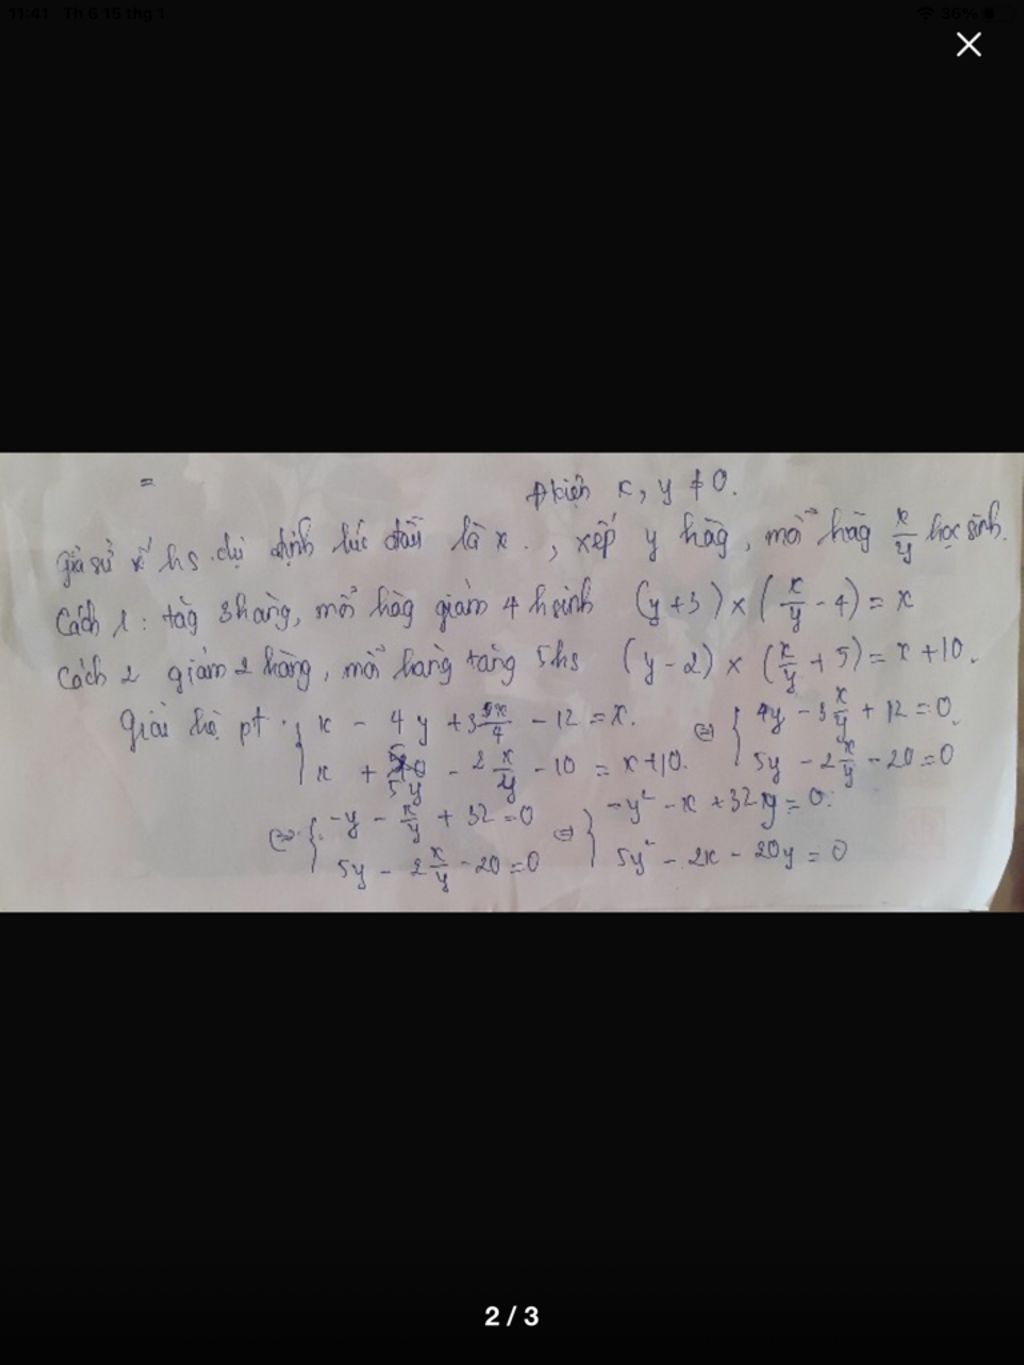 11:41 Th 6 15 thg 1
36%
=
đkiện x, y ≠ 0.
Giả sử số hs dự định lúc đầu là x., xếp y hàg, mỗi hàg x/y học sinh.
Cách 1: tăg 3 hàng, mỗi hàg giảm 4 hsinh (y + 3) × (x/y - 4) = x
Cách 2 giảm 2 hàng, mỗi hàng tăng 5 hs (y - 2) × (x/y + 5) = x + 10.
Giải hệ pt: { x - 4y + 3 x/4 - 12 = x. ⇔ { 4y - 3 x/y + 12 = 0.
x + 5y - 2 x/y - 10 = x + 10. 5y - 2 x/y - 20 = 0
⇔ { -y - x/y + 32 = 0 ⇔ { -y² - x + 32y = 0.
5y - 2 x/y - 20 = 0 5y² - 2x - 20y = 0
2 / 3